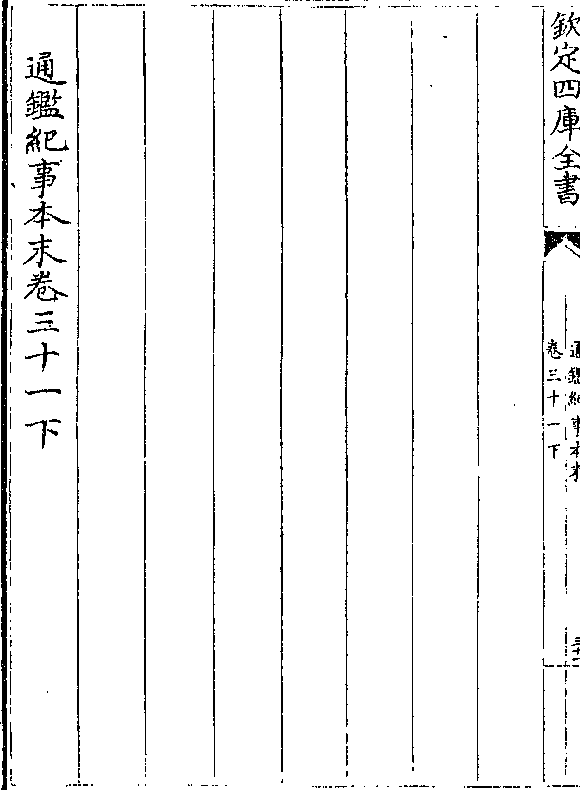 欽定四庫全書
通鑑紀事本末
卷三十一下
通鑑紀事本末卷三十一下